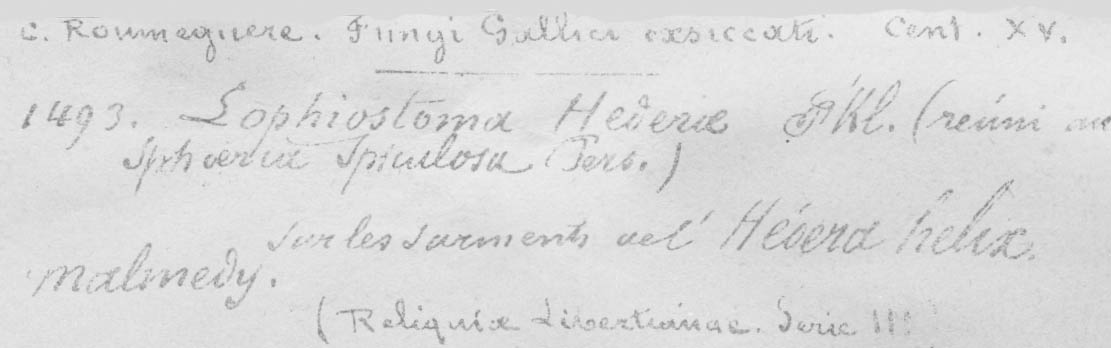 C. Roumeguere. Fungi Gallici exsiccati. Cent. XV.
1493. Lophiostoma Hederæ Fkl. (réuni au
Sphæria Spiculosa Pers.)
sur les sarments de l' Hédera helix.
Malmedy.
(Reliquiæ Libertianae. Serie III